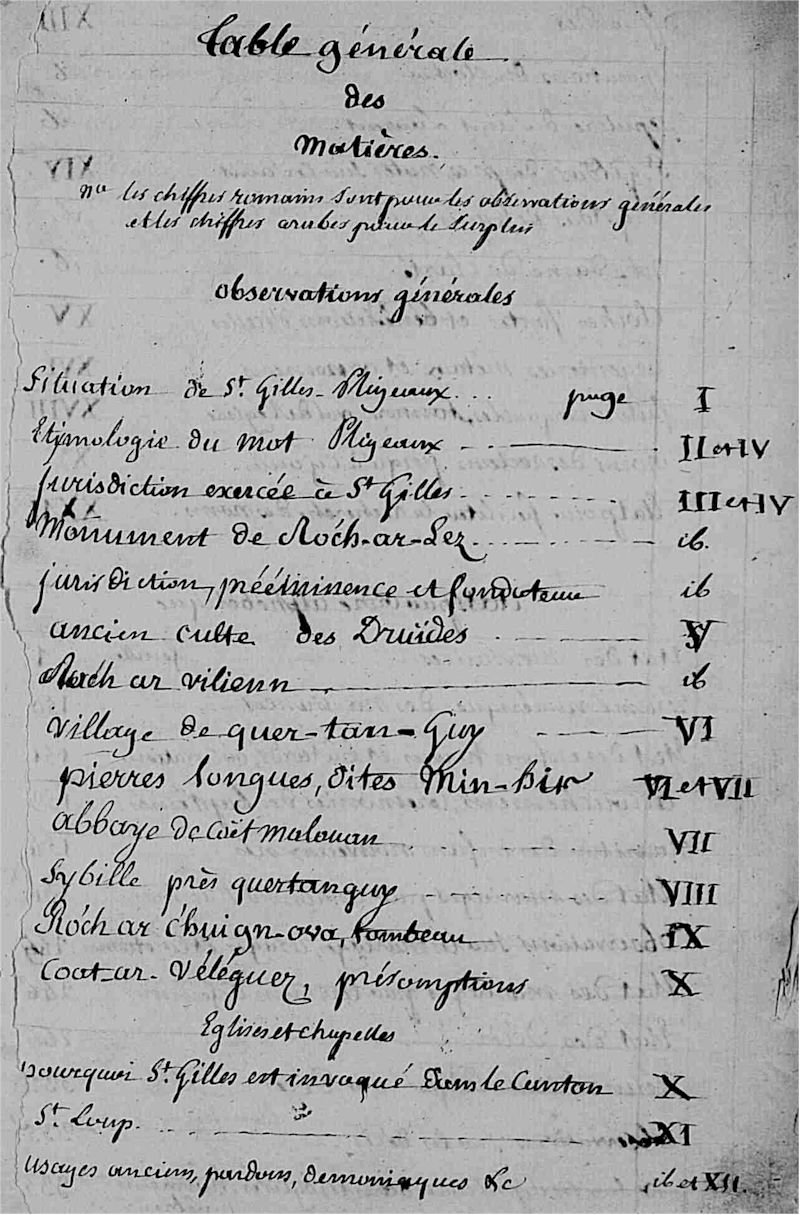 Table générale
des
Matières.
nta les chiffres romains sont pour les observations générales
et les chiffres arabes pour le surplus
observations générales
Situation de St. Gilles-Pligeaux... page I
Etÿmologie du mot Pligeaux II et IV
jurisdiction exercée à St Gilles III et IV
Monument de Roc'h-ar-Lez ib.
jurisdiction, prééminence et fondateur ib
ancien culte des Druïdes V
Roc'h ar vilienn ib
village de quer-tan-Guy VI
pierres longues, dites Min-hir VI et VII
abbaye de Coët malouan VII
Sybille près quertanguy VIII
Roc'h ar c'huign-ova, tombeau IX
Coat-ar-Véléguer, présomptions X
Eglises et chapelles
pourquoi St. Gilles est invoqué dans le Canton X
St. Loup. XI
usages anciens, pardons, demoniaques &c ib et XII.